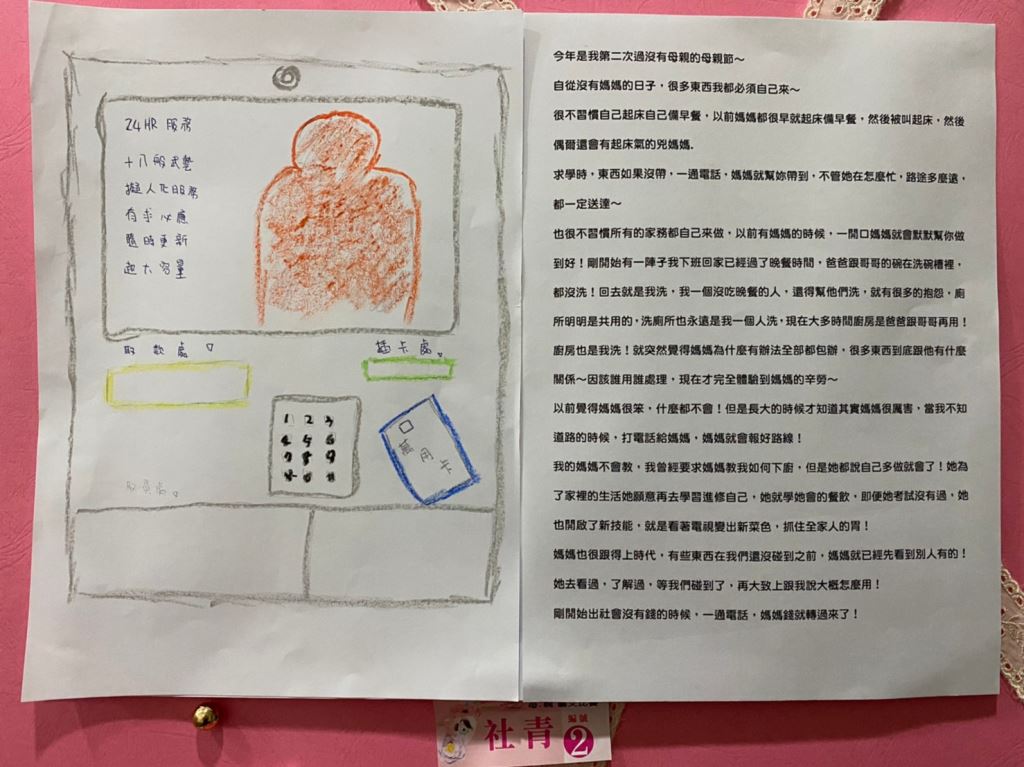 24HR 服務
十八般武藝
擬人化服務
有求必應
隨時更新
超大容量
取款處
插卡處
1 2 3
4 5 6
7 8 9
* 0 #
萬用卡
今年是我第二次過沒有母親的母親節～
自從沒有媽媽的日子，很多東西我都必須自己來～
很不習慣自己起床自己備早餐，以前媽媽都很早就起床備早餐，然後被叫起床，然後
偶爾還會有起床氣的兇媽媽.
求學時，東西如果沒帶，一通電話，媽媽就幫妳帶到，不管她在怎麼忙，路途多麼遠，
都一定送達～
也很不習慣所有的家務都自己來做，以前有媽媽的時候，一開口媽媽就會默默幫你做
到好！剛開始有一陣子我下班回家已經過了晚餐時間，爸爸跟哥哥的碗在洗碗槽裡，
都沒洗！回去就是我洗，我一個沒吃晚餐的人，還得幫他們洗，就有很多的抱怨，廁
所明明是共用的，洗廁所也永遠是我一個人洗，現在大多時間廚房是爸爸跟哥哥再用！
廚房也是我洗！就突然覺得媽媽為什麼有辦法全部都包辦，很多東西到底跟他有什麼
關係～因該誰用誰處理，現在才完全體驗到媽媽的辛勞～
以前覺得媽媽很笨，什麼都不會！但是長大的時候才知道其實媽媽很厲害，當我不知
道路的時候，打電話給媽媽，媽媽就會報好路線！
我的媽媽不會教，我曾經要求媽媽教我如何下廚，但是她都說自己多做就會了！她為
了家裡的生活她願意再去學習進修自己，她就學她會的餐飲，即便她考試沒有過，她
也開啟了新技能，就是看著電視變出新菜色，抓住全家人的胃！
媽媽也很跟得上時代，有些東西在我們還沒碰到之前，媽媽就已經先看到別人有的！
她去看過，了解過，等我們碰到了，再大致上跟我說大概怎麼用！
剛開始出社會沒有錢的時候，一通電話，媽媽錢就轉過來了！
社青 編號 2